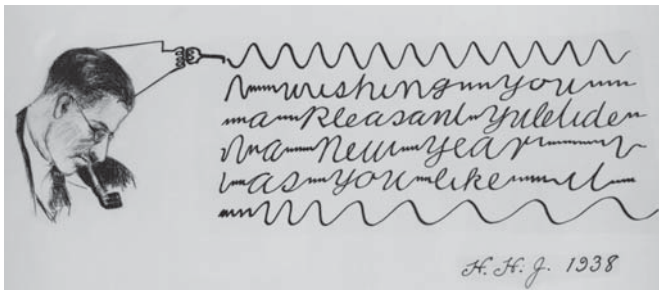 wishing you
a Pleasant Yuletide
n a New Year
as you like it
H. H. J. 1938